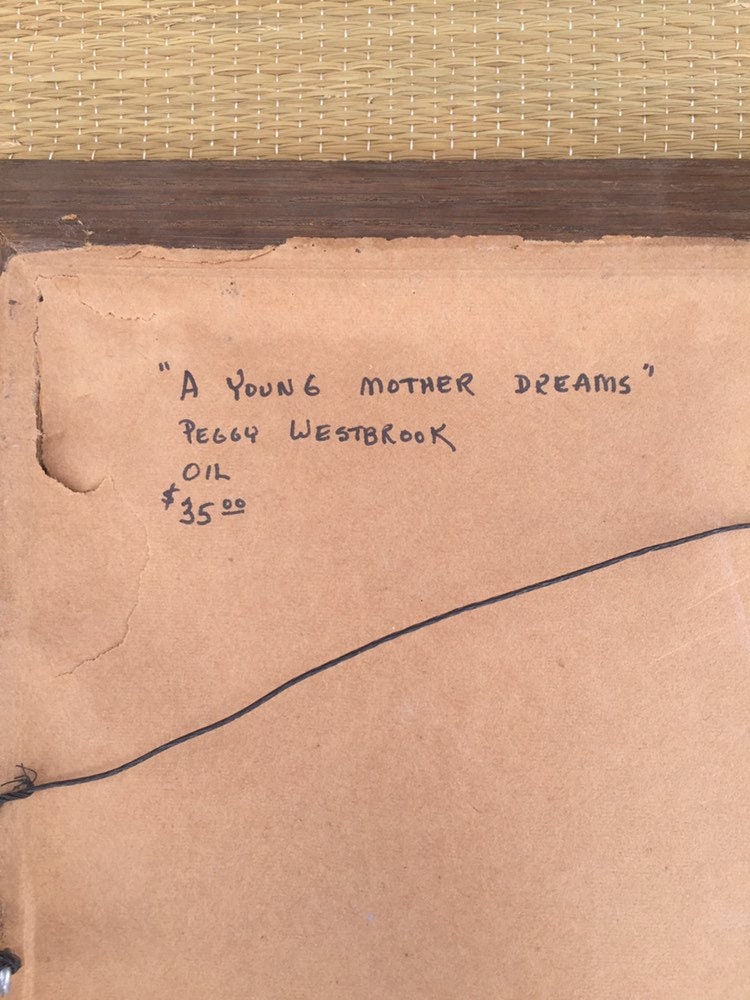 "A YOUNG MOTHER DREAMS"
PEGGY WESTBROOK
OIL
$35.00